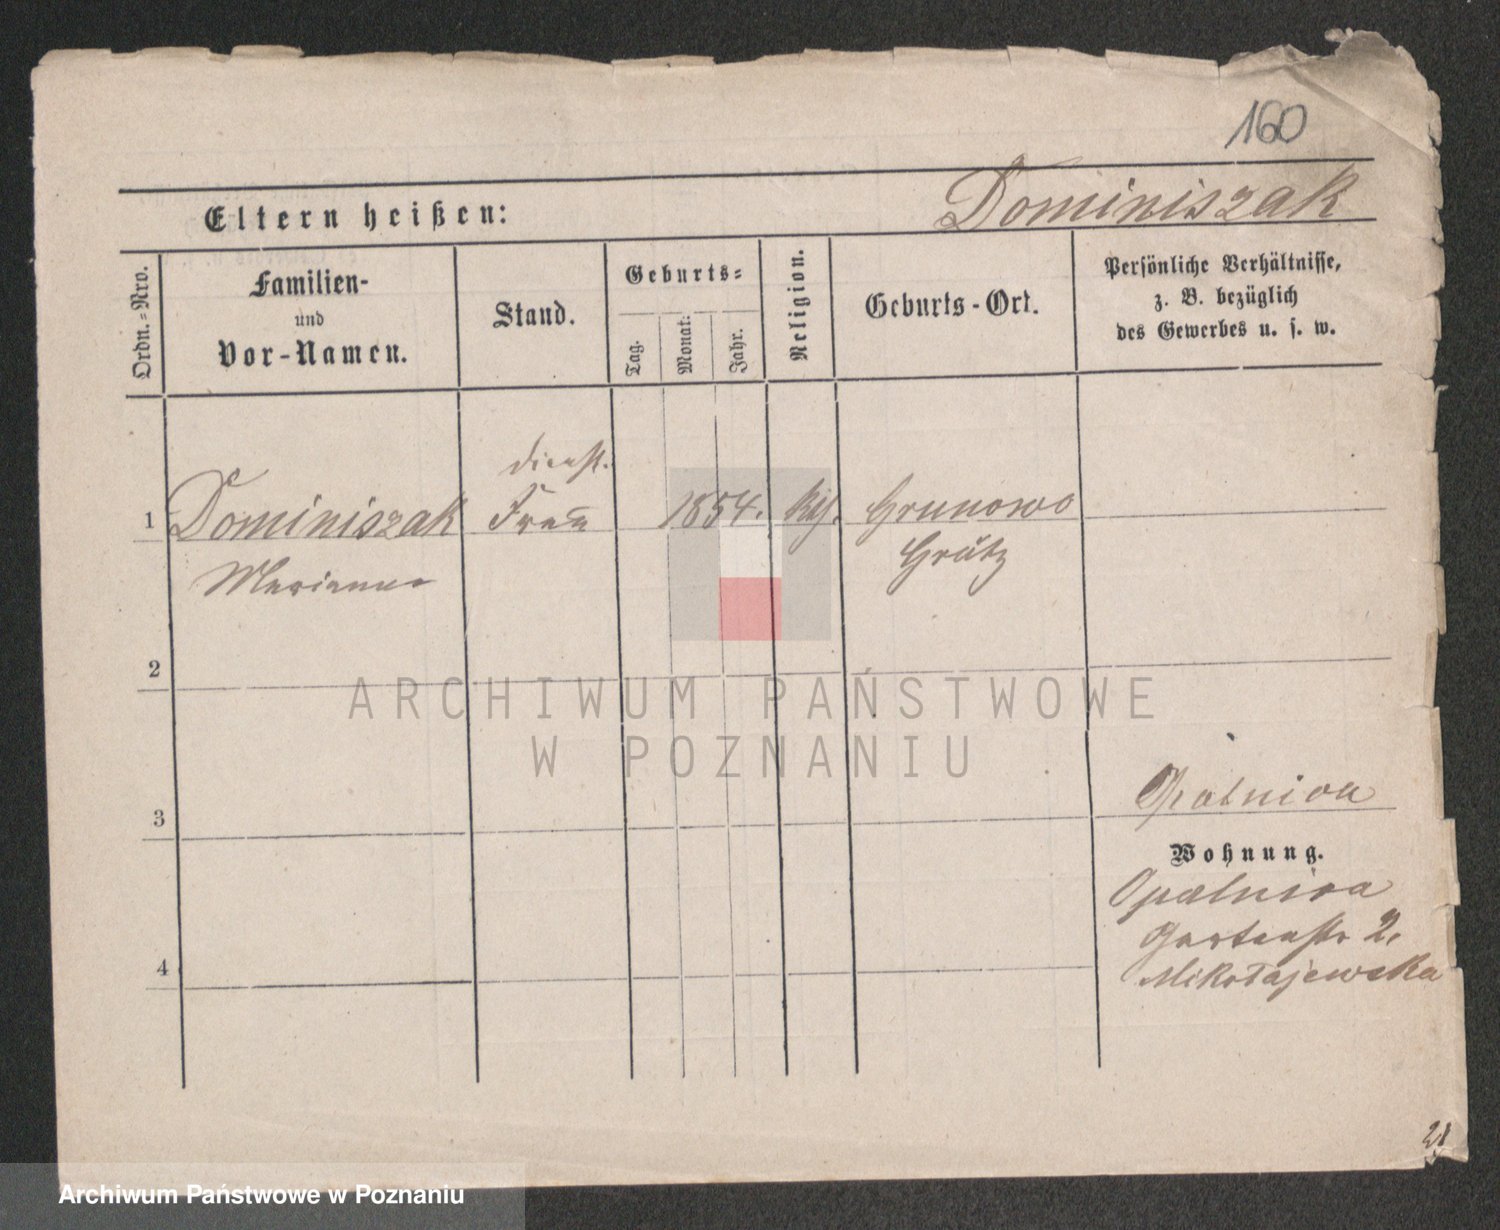 160
Dominiszak
Eltern heißen:
Ordn.=Nro.
Familien-
und
Vor-Namen.
Stand.
Geburts=
Tag.
Monat:
Jahr.
Religion.
Geburts-Ort.
Persönliche Verhältnisse,
z. B. bezüglich
des Gewerbes u. s. w.
dienst.
1 Dominiszak Frau 1854. Kth. Grunowo
Marianna Grätz
2
ARCHIWUM PAŃSTWOWE
W POZNANIU
Opalnica
3
Wohnung.
Opalnica
Gartenstr 2,
4
Mikołajewska
21
Archiwum Państwowe w Poznaniu